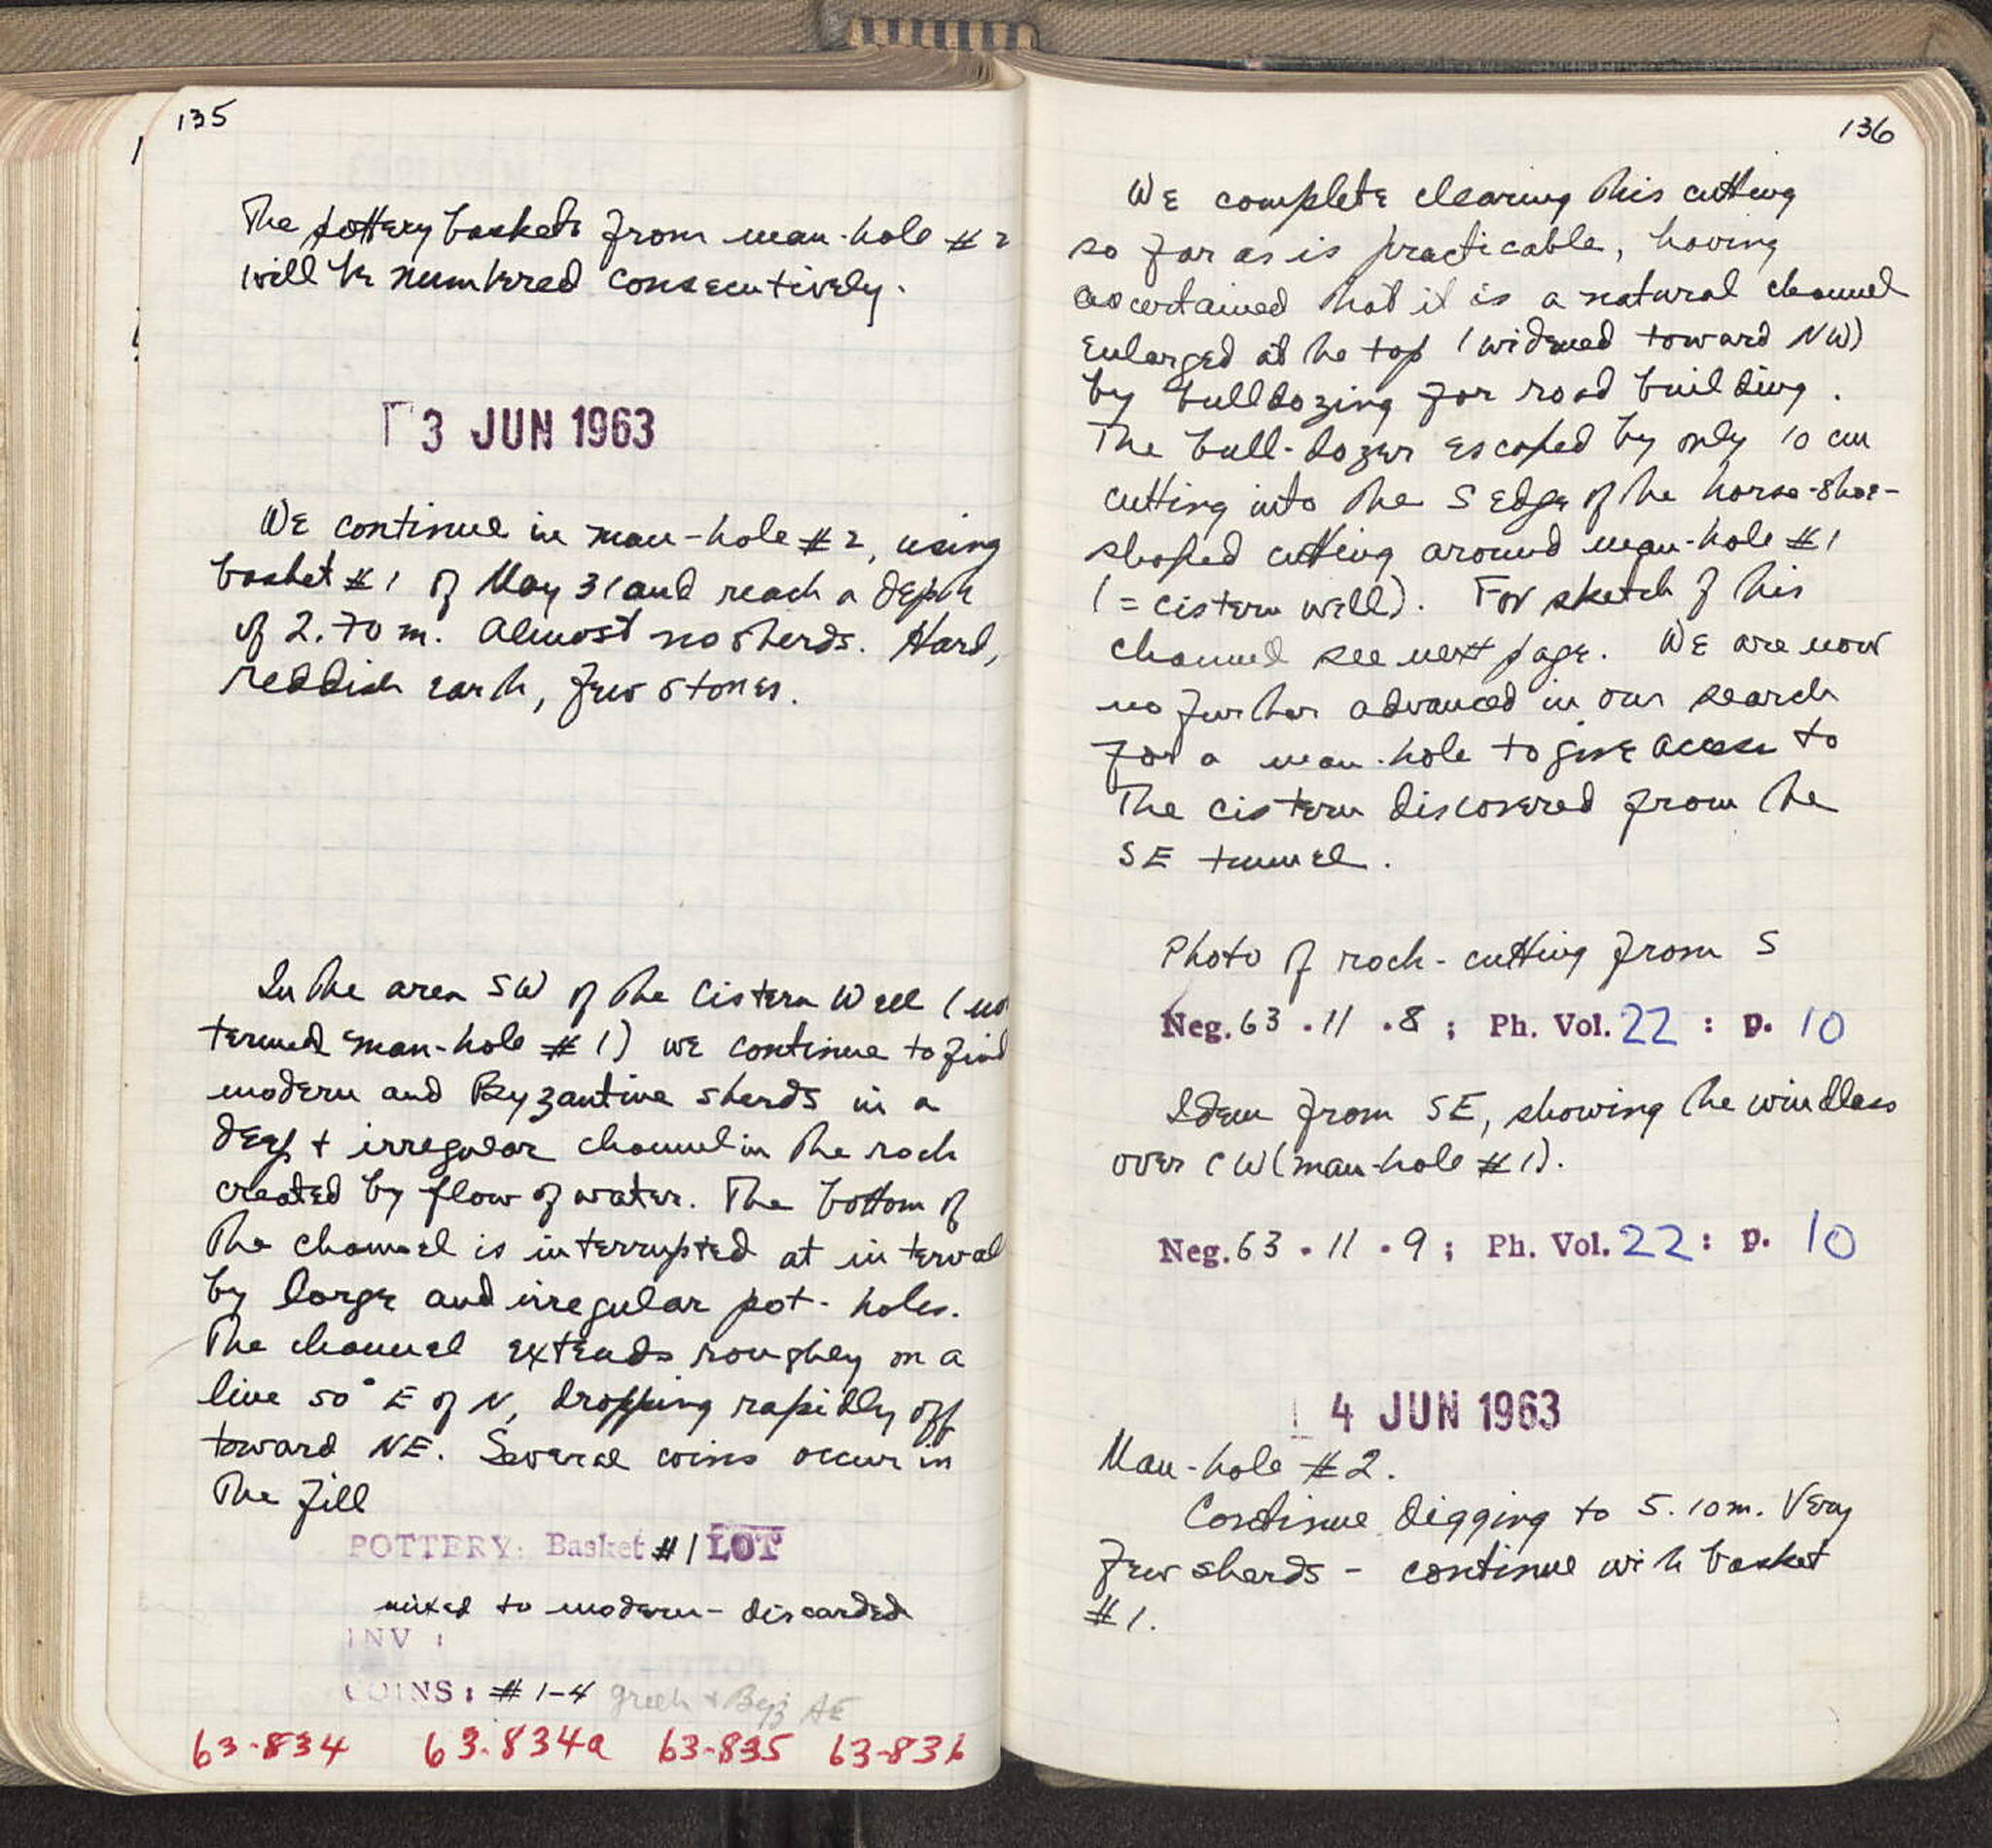 135
The pottery baskets from man-hole #2
will be numbered consecutively.
3 JUN 1963
We continue in man-hole #2, using
basket #1 of May 31 and reach a depth
of 2.70 m. Almost no sherds. Hard,
reddish earth, few stones.
In the area SW of the Cistern Well (no
termed "man-hole #1) we continue to find
modern and Byzantine sherds in a
deep + irregular channel in the rock
created by flow of water. The bottom of
the channel is interrupted at interval
by large and irregular pot-holes.
The channel extends roughly on a
line 50° E of N, dropping rapidly off
toward NE. Several coins occur in
the fill
POTTERY: Basket #1 LOT
mixed to modern - discarded
INV :
COINS: #1-4 Greek + Byz AE
63-834 63-834a 63-835 63-836
136
We complete clearing this cutting
so far as is practicable, having
ascertained that it is a natural channel
enlarged at the top (widened toward NW)
by bulldozing for road building.
The bull-dozer escaped by only 10 cm
cutting into the S edge of the horse-shoe-
shaped cutting around man-hole #1
(= cistern well). For sketch of this
channel see next page. We are now
no further advanced in our search
for a man-hole to give access to
the cistern discovered from the
SE tunnel.
Photo of rock-cutting from S
Neg. 63 . 11 . 8 ; Ph. Vol. 22 : p. 10
Idem from SE, showing the windlass
over CW (man-hole #1).
Neg. 63 . 11 . 9 ; Ph. Vol. 22 : p. 10
4 JUN 1963
Man-hole #2.
Continue digging to 5.10m. Very
few sherds - continue with basket
#1.